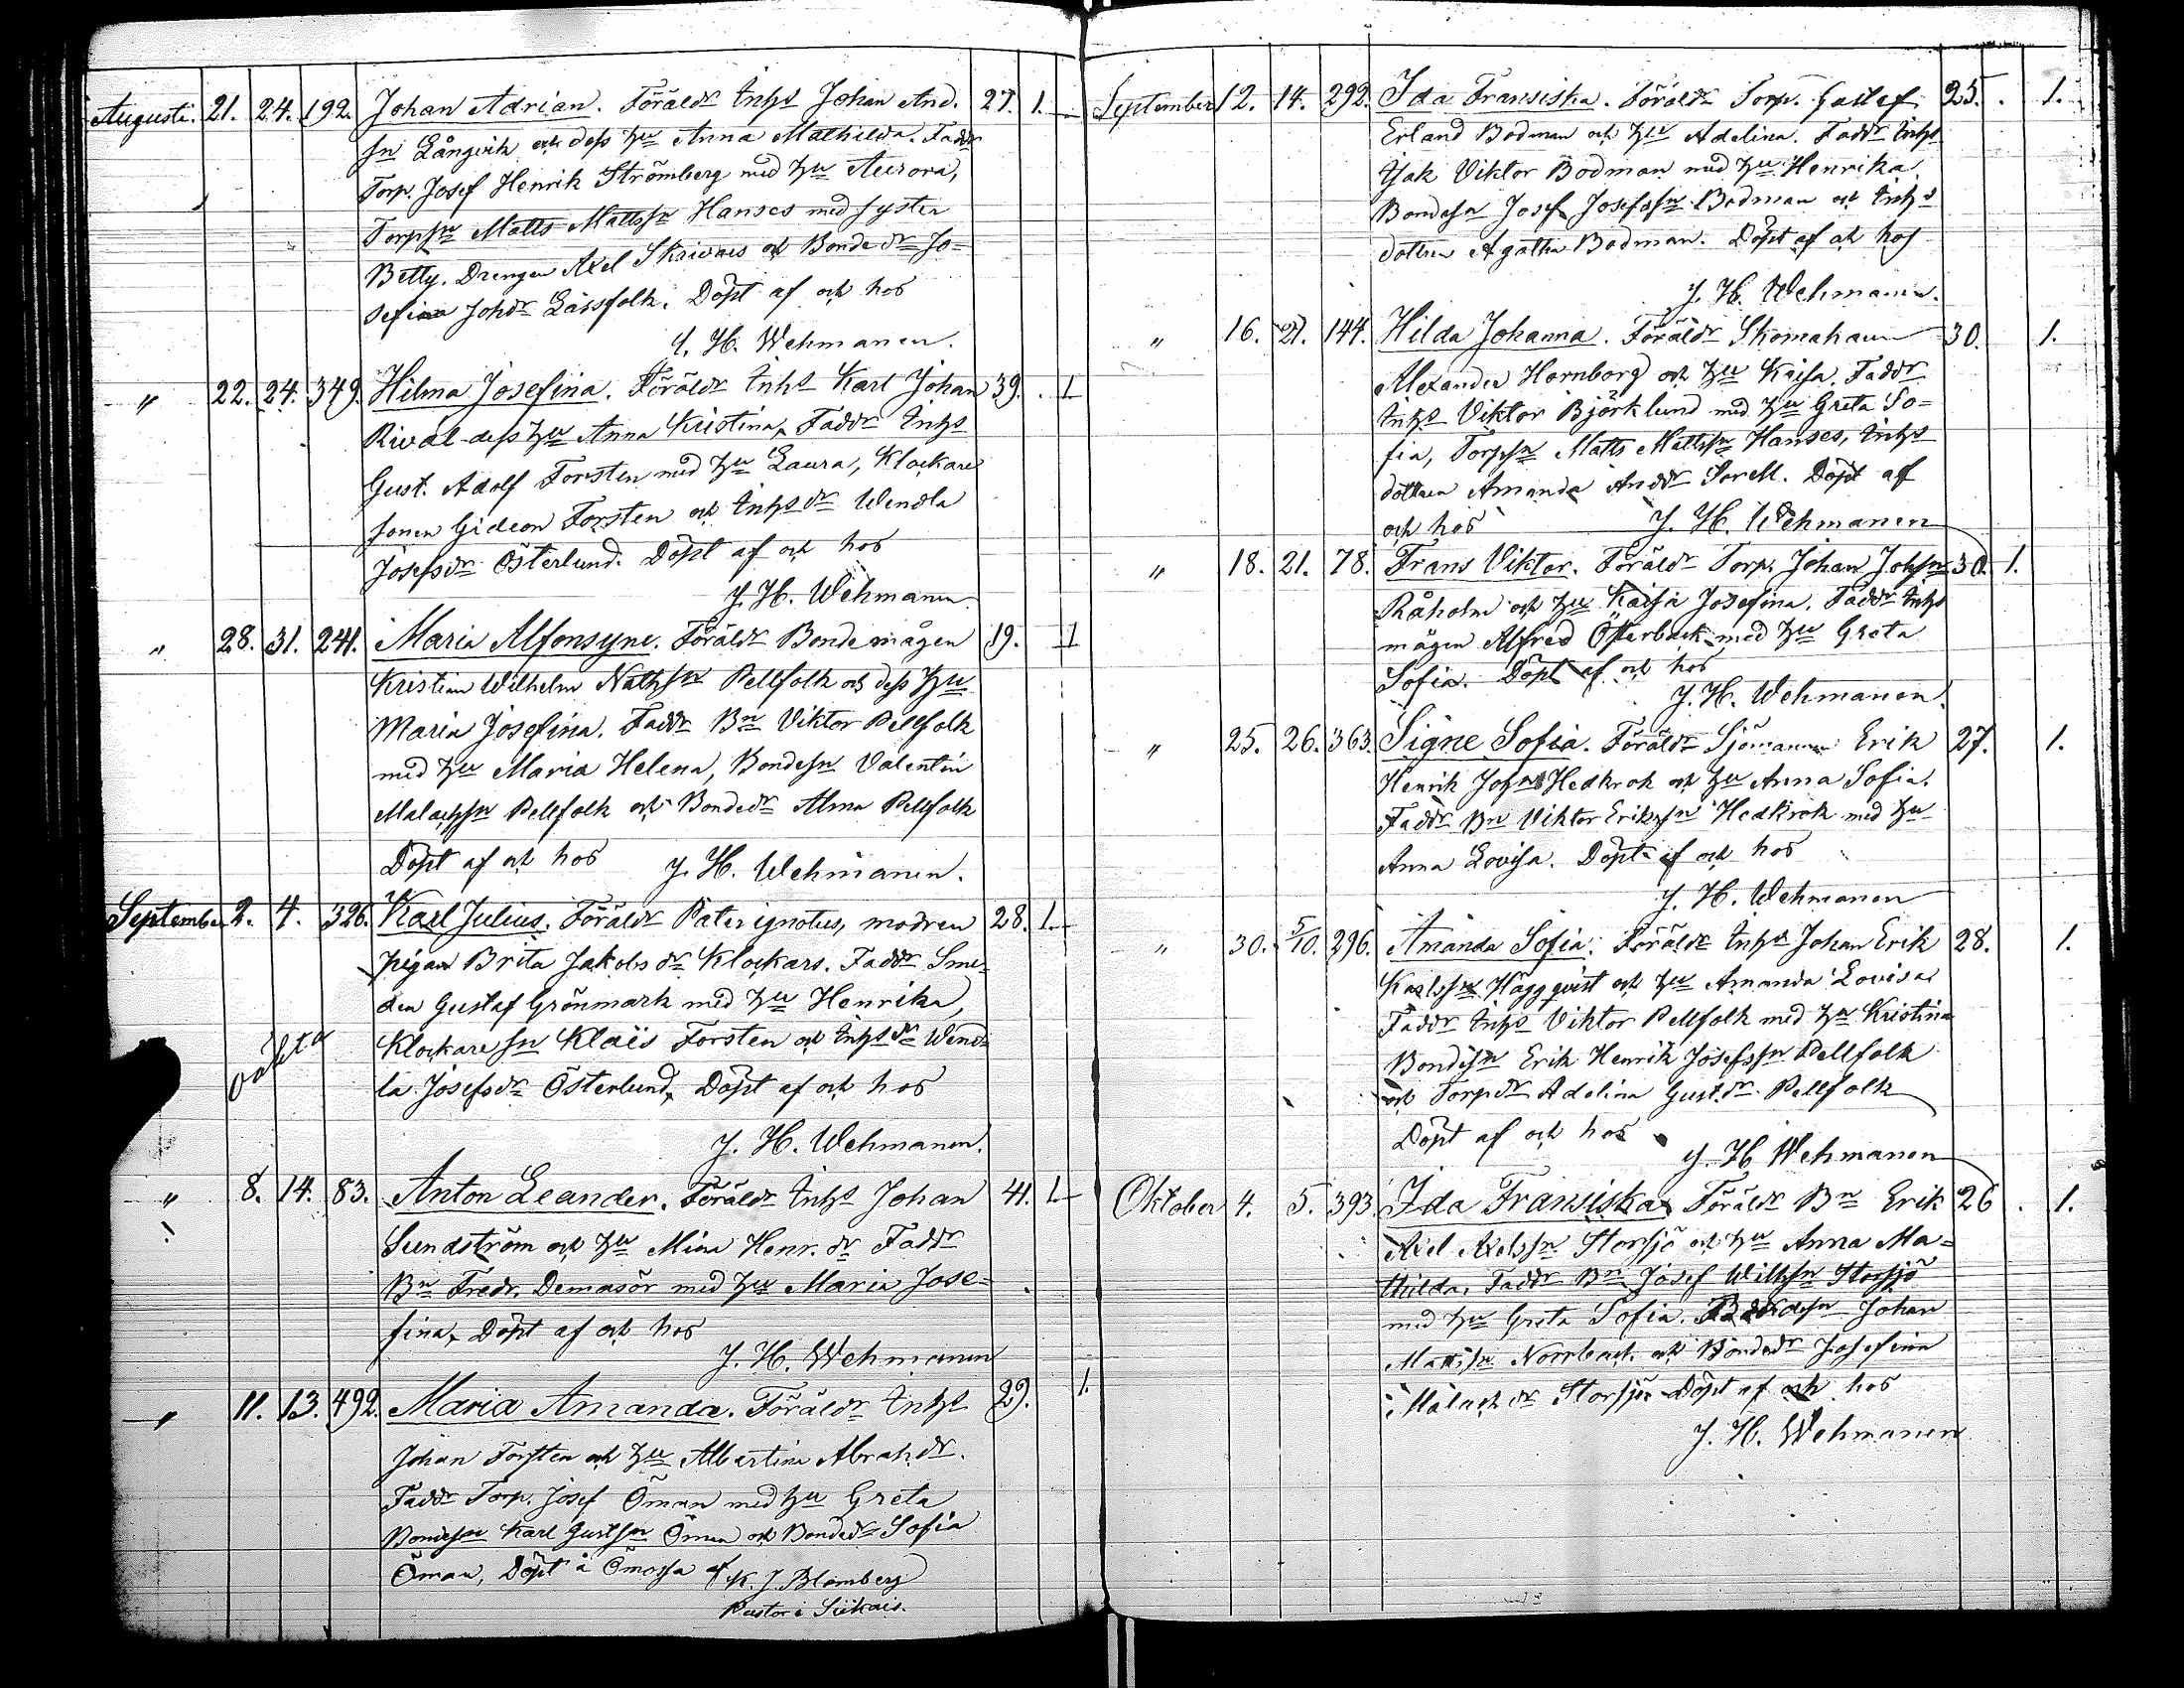 Augusti. 21. 24. 192. Johan Adrian. Föräldr Inhs Johan And. 27. 1.
sn Långvik och dess hu Anna Mathilda. Faddr
Torp. Josef Henrik Strömberg med hu Aurora,
Torpsn Matts Mattssn Hanses med syster
Betty. Drengen Axel Skrivars och Bondedr Jo=
sefina Johdr Lassfolk. Döpt af och hos
J. H. Wehmanen.
" 22. 24. 349. Hilma Josefina. Föräldr Inhs Karl Johan 39. 1
Rival dess hu Anna Kristina. Faddr Inhs
Gust. Adolf Forsten med hu Laura, Klockare
sonen Gideon Forsten och Inhsdr Wendla
Josefsdr Österlund. Döpt af och hos
J. H. Wehmanen
" 28. 31. 241. Maria Alfonsyne. Föräldr Bondemågen 19. 1
Kristian Wilhelm Nathsn Pellfolk och dess hu
Maria Josefina. Faddr Bn Viktor Pellfolk
med hu Maria Helena, Bondesn Valentin
Malachsn Pellfolk och Bondedr Alma Pellfolk
Döpt af och hos J. H. Wehmanen.
September 2. 4. 326. Karl Julius. Föräldr Pater ignotus, modren 28. 1.
pigan Brita Jakobsdr Klockars. Faddr Sme=
den Gustaf Grönmark med hu Henrika,
Klockaresn Klaës Forsten och Inhsdr Wend=
la Josefsdr Österlund, Döpt af och hos
oäkta
J. H. Wehmanen.
" 8. 14. 83. Anton Leander. Föräldr Inhs Johan 41. 1
Sundström och hu Mina Henr. dr Faddr
Bn Fredr. Demasör med hu Maria Jose=
fina, Döpt af och hos
J. H. Wehmanen
" 11. 13. 492. Maria Amanda. Föräldr Inhs 29. 1.
Johan Forsten och hu Albertina Abrahdr.
Faddr Torp. Josef Öman med hu Greta
Bondesn Karl Gustsn Öman och Bondedr Sofia
Öman, Döpt i Ömossa af K. J. Blomberg
Pastor i Siikais.
September 12. 14. 292. Ida Fransiska. Föräldr Torp. Gustaf 25. 1.
Erland Bodman och hu Adelina. Faddr Inhs
Isak Viktor Bodman med hu Henrika
Bondesn Josef Josefssn Bodman och Inhs
dottren Agatha Bodman. Döpt af och hos
J. H. Wehmanen.
" 16. 21. 144. Hilda Johanna. Föräldr Skomakaren 30. 1.
Alexander Hornborg och hu Kaisa. Faddr
Inhs Viktor Björklund med hu Greta So=
fia, Torpsn Matts Mattssn Hanses, Inhs
dottren Amanda Anddr Sorell. Döpt af
och hos J. H. Wehmanen
" 18. 21. 78. Frans Viktor. Föräldr Torp. Johan Johsn 30. 1.
Råholm och hu Kaisa Josefina. Faddr Inhs
mågen Alfred Österback med hu Greta
Sofia. Döpt af och hos
J. H. Wehmanen.
" 25. 26. 363. Signe Sofia. Föräldr Sjömannen Erik 27. 1.
Henrik Johns Hedkrok och hu Anna Sofia.
Faddr Bn Viktor Erikssn Hedkrok med hu
Anna Lovisa. Döpt af och hos
J. H. Wehmanen
" 30. 5/10. 296. Amanda Sofia. Föräldr Inhs Johan Erik 28. 1.
Karlssn Häggqvist och hu Amanda Lovisa
Faddr Inhs Viktor Pellfolk med hu Kristina
Bondesn Erik Henrik Josefssn Pellfolk
och Torpdr Adelina Gust.dr Pellfolk
Döpt af och hos
J. H. Wehmanen
Oktober 4. 5. 393. Ida Fransiska. Föräldr Bn Erik 26. 1.
Axel Axelssn Storsjö och hu Anna Ma=
thilda. Faddr Bn Josef Willssn Storsjö
med hu Greta Sofia. Johan
Mattssn Norrback och Bondedr Josefina
Malachdr Storsjö Döpt af och hos
J. H. Wehmanen